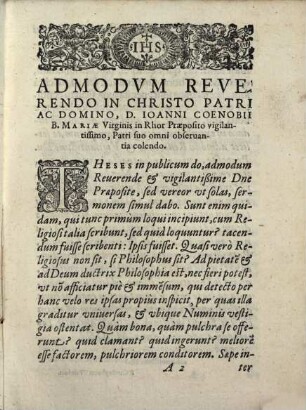 IHS
ADMODVM REVE
RENDO IN CHRISTO PATRI
AC DOMINO, D. IOANNI COENOBII
B. MARIÆ Virginis in Rhor Præposito vigilan-
tissimo, Patri suo omni obseruan-
tia colendo.
THESES in publicum do, admodum
Reuerende & vigilantissime Dne
Præposite, sed vereor vt solas, ser-
monem simul dabo. Sunt enim qui-
dam, qui tunc primum loqui incipiunt, cum Re-
ligiosi talia scribunt, sed quid loquuntur? tacen-
dum fuisse scribenti: Ipsis fuisset. Quasi verò Re-
ligiosus non sit, si Philosophus sit? Ad pietatē &
ad Deum ductrix Philosophia est, nec fieri potest,
vt nō afficiatur piè & immēsum, qui detecto per
hanc velo res ipsas propiùs inspicit, per quas illa
graditur vniuersas, & vbique Numinis vesti-
gia ostentat. Quàm bona, quàm pulchra se offe-
runt? quid clamant? quid ingerunt? meliorē
esse factorem, pulchriorem conditorem. Sæpe in-
A 2 ter